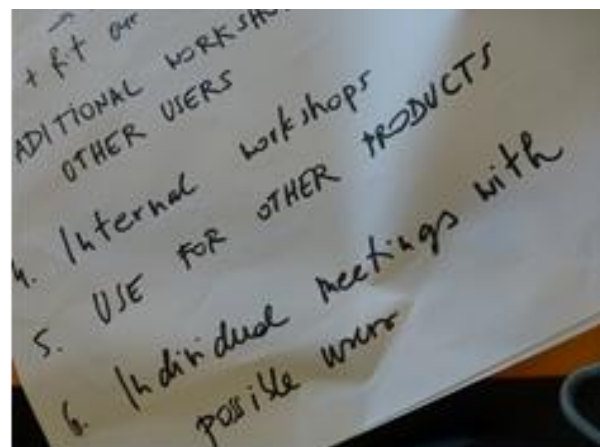 + fit our
ADITIONAL WORKSHO
OTHER USERS
4. Internal workshops
5. USE FOR OTHER PRODUCTS
6. Individual meetings with
possible users